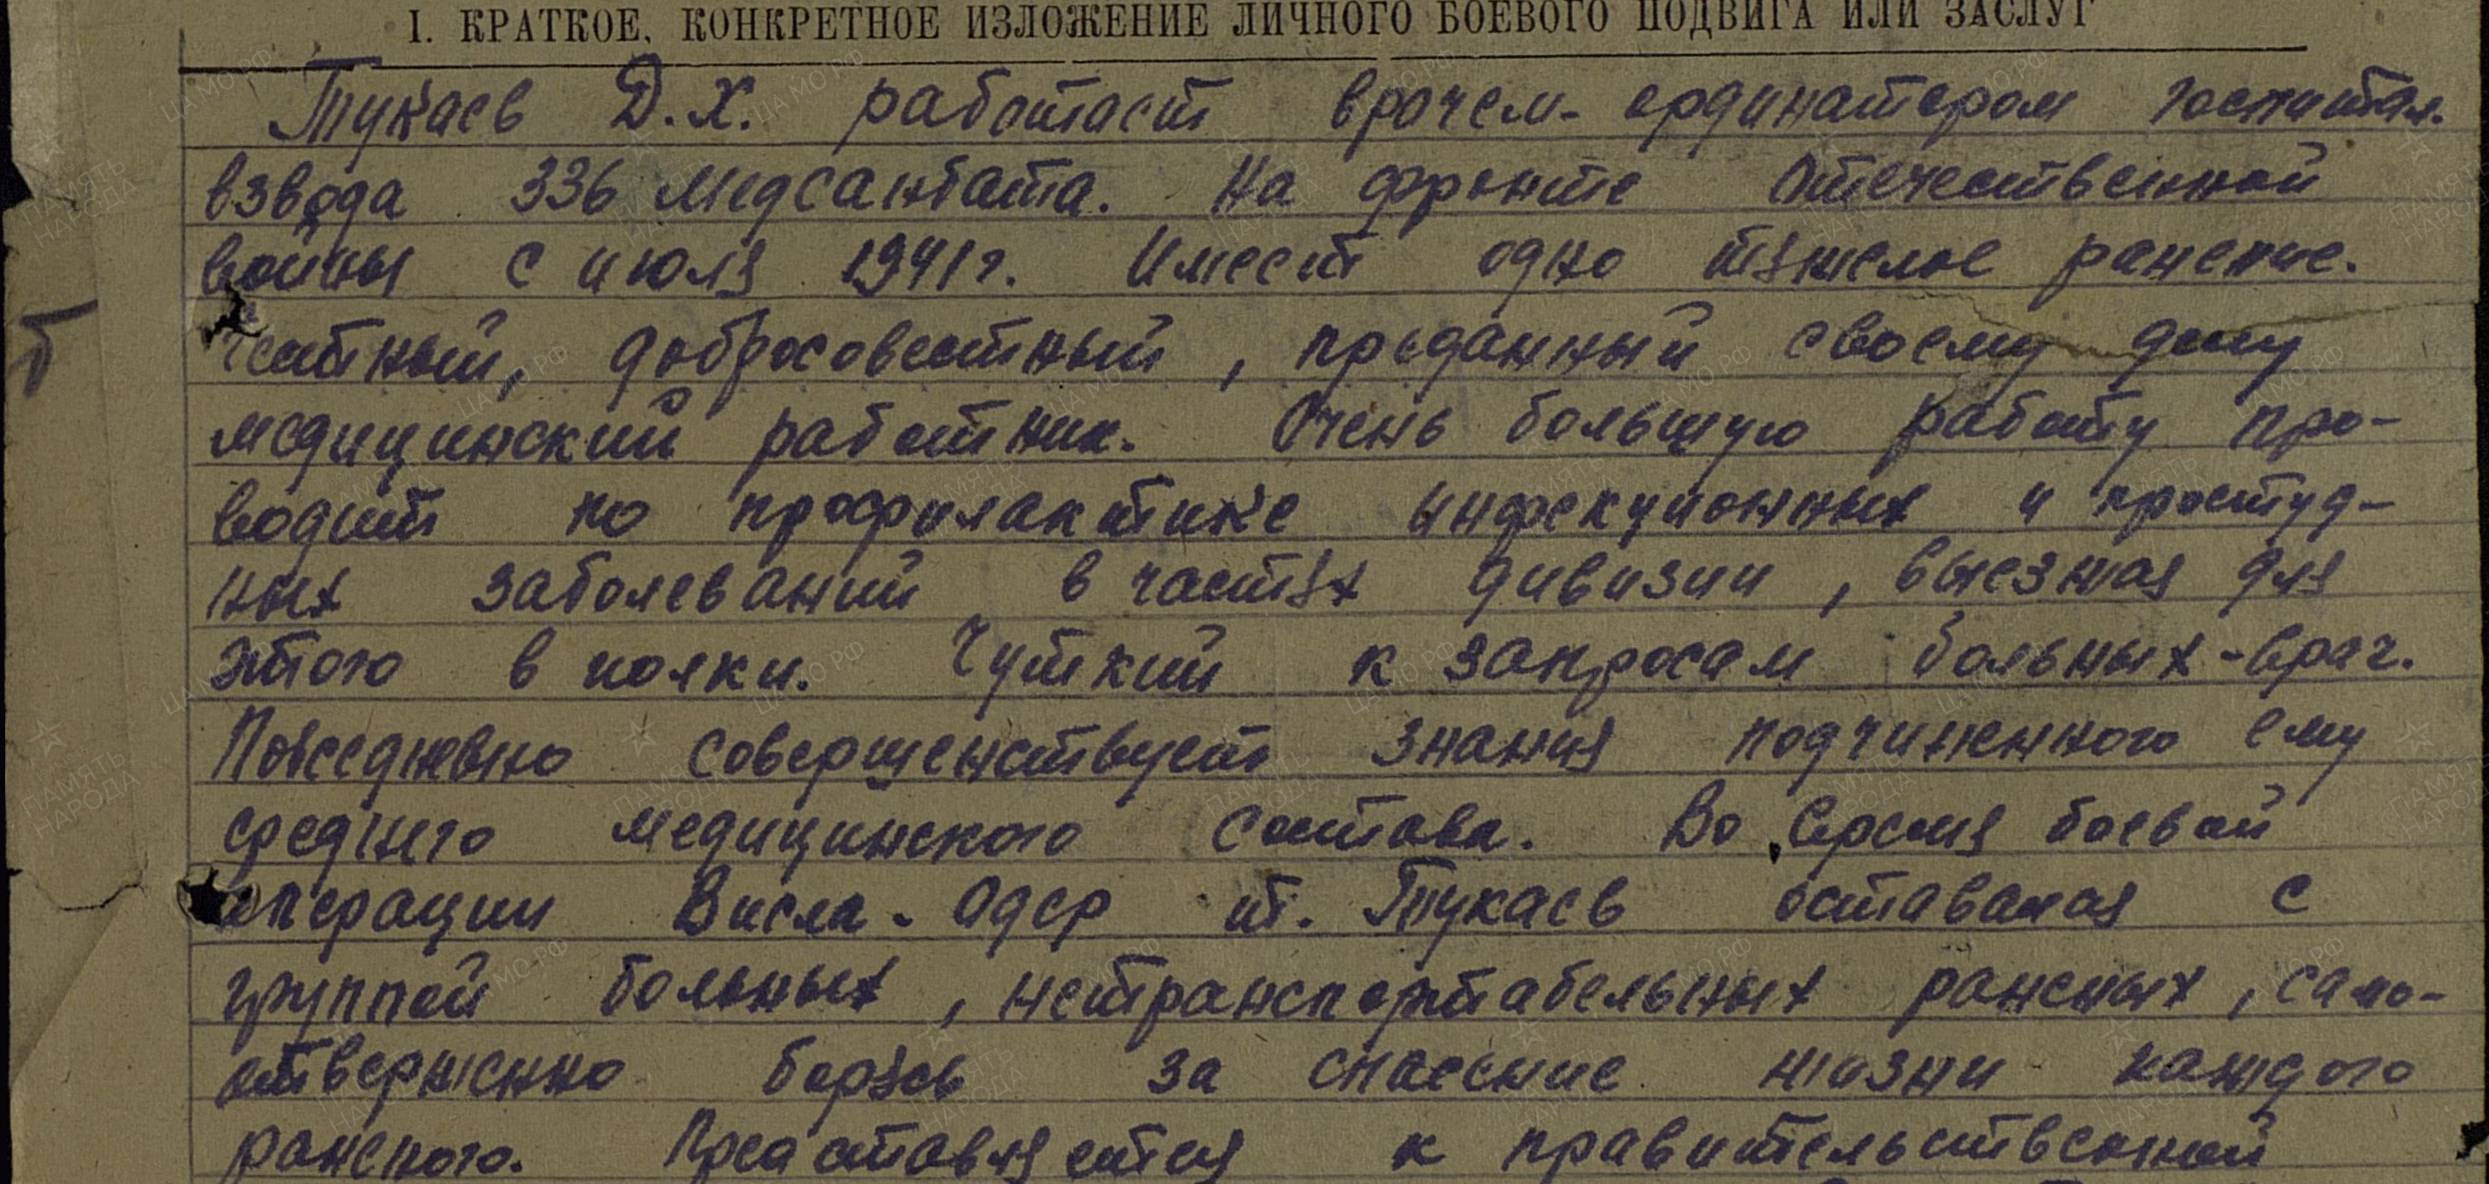 I. КРАТКОЕ, КОНКРЕТНОЕ ИЗЛОЖЕНИЕ ЛИЧНОГО БОЕВОГО ПОДВИГА ИЛИ ЗАСЛУГ
Тукаев Д.Х. работает врачем-ординатором госпитал.
взвода 336 медсанбата. На фронте Отечественной
войны с июля 1941г. Имеет одно тяжелое ранение.
Честный, добросовестный, преданный своему делу
медицинский работник. Очень большую работу про-
водит по профилактике инфекционных и простуд-
ных заболеваний в частях дивизии, выезжая для
этого в полки. Чуткий к запросам больных-врач.
Повседневно совершенствует знания подчиненного ему
среднего медицинского состава. Во время боевой
операции Висла-Одер т. Тукаев оставался с
группой больных, нетранспортабельных раненых, само-
отверженно борясь за спасение жизни каждого
раненого. Представляется к правительственной
5
ПАМЯТЬ НАРОДА
ЦА МО РФ